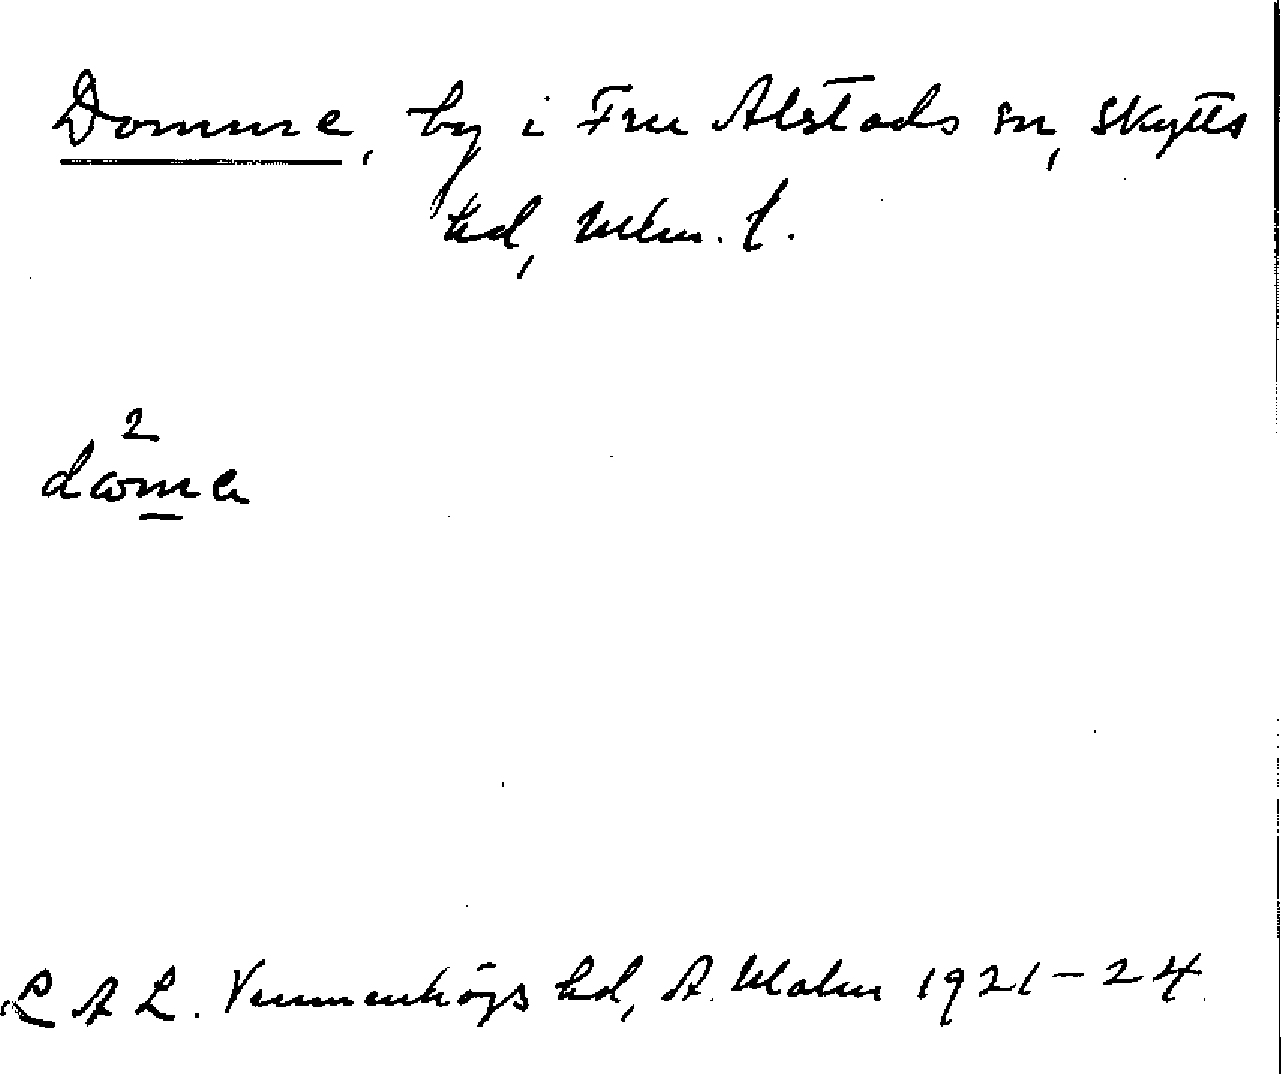 Domme, by i Fru Alstads sn, Skytts
hd, Mlm. l.
2
doma
L A L. Vemmenhögs hd, A. Malm 1921–24